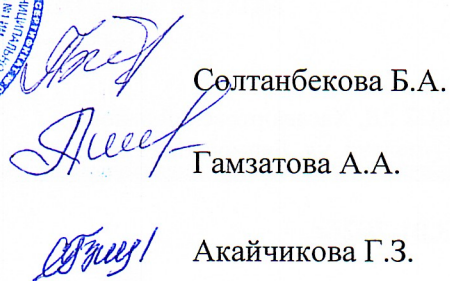 Солтанбекова Б.А.
Гамзатова А.А.
Акайчикова Г.З.